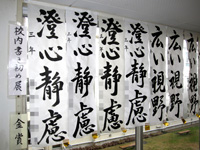 校内書き初め展
金賞
三年
澄心静慮
澄心静慮
澄心静慮
広い視野
広い視野